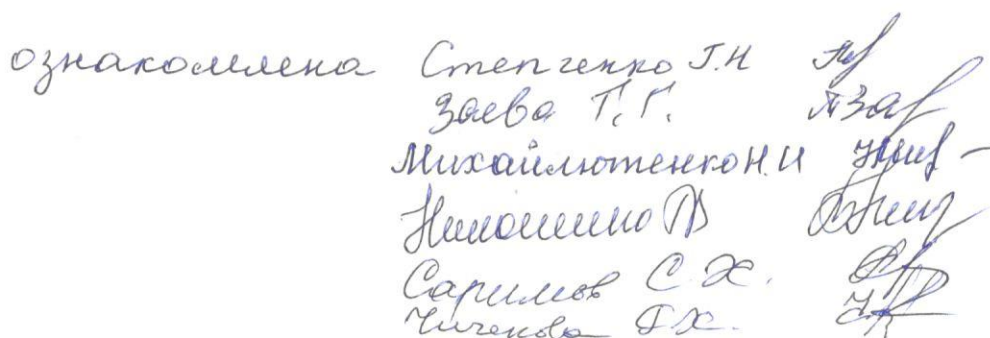 ознакомлена Степченко Т.Н
Заева Т.Г.
Михайлютенко Н.И
Саримов С.Х.
Чиченова Г.Х.